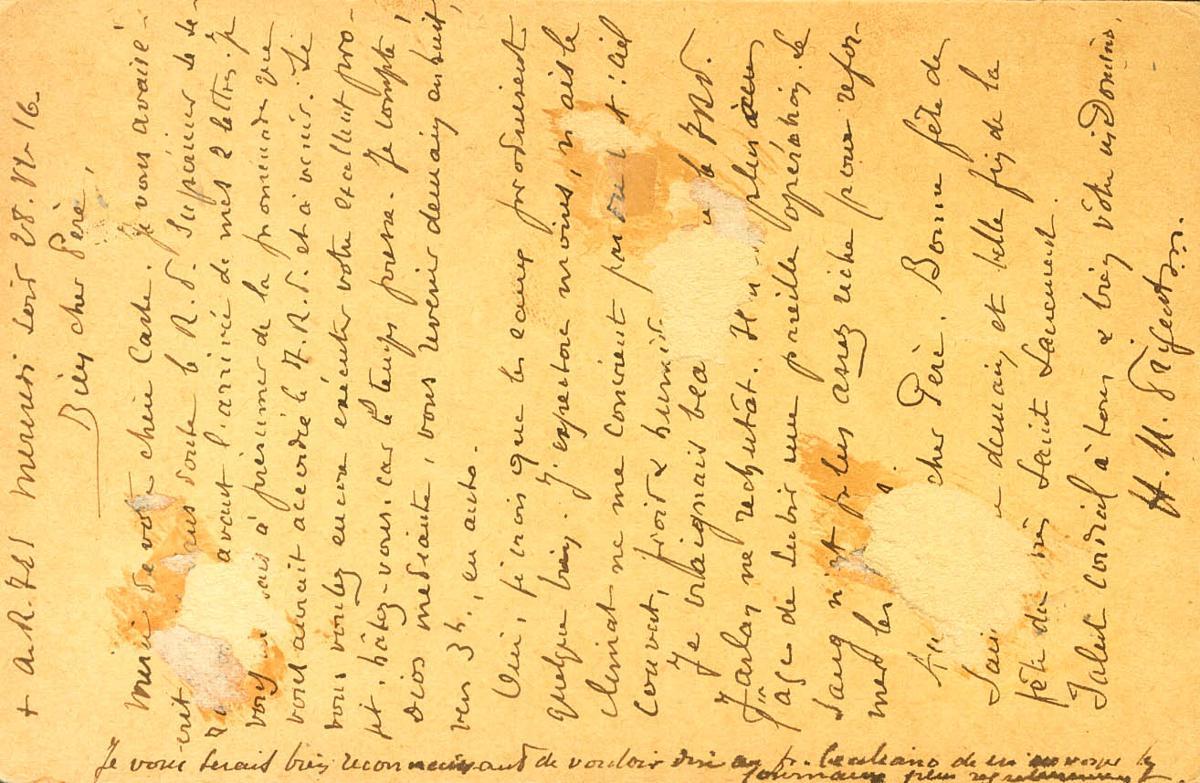 + A.R. Mercredi soir 28.VI-16.
Bien cher Père,
Merci de votre chère Carte. Je vous avais é-
crit sans doute le R.P. Supérieur de
avant l'arrivée de mes 2 lettres. Je
vous à présumer de la promenade que
vous aurait accordée le T.R.P. et à venir. Si
vous voulez encore exécuter votre excellent pro-
jet, hâtez-vous car le temps presse. Je compte,
Dios mediante, vous revenir demain en huit,
vers 3h., en auto.
Oui, je crois que les eaux produisent
quelque bien. J'expectore moins, mais le
climat ne me convient pas : ciel
couvert, froid & humide.
Je craignais le T.R.P.
Jarlan ne rechutât. plus
âge de subir une pareille opération. Le
sang n'est plus assez riche pour refor-
mer les
cher Père. Bonne fête de
demain et belle fin de la
fête du Saint Sacrement.
Salut cordial à tous & bien vôtre in Domino.
H. M.
Je vous serais bien reconnaissant de vouloir dire au fr. de m'envoyer les
journaux plus régulièrement